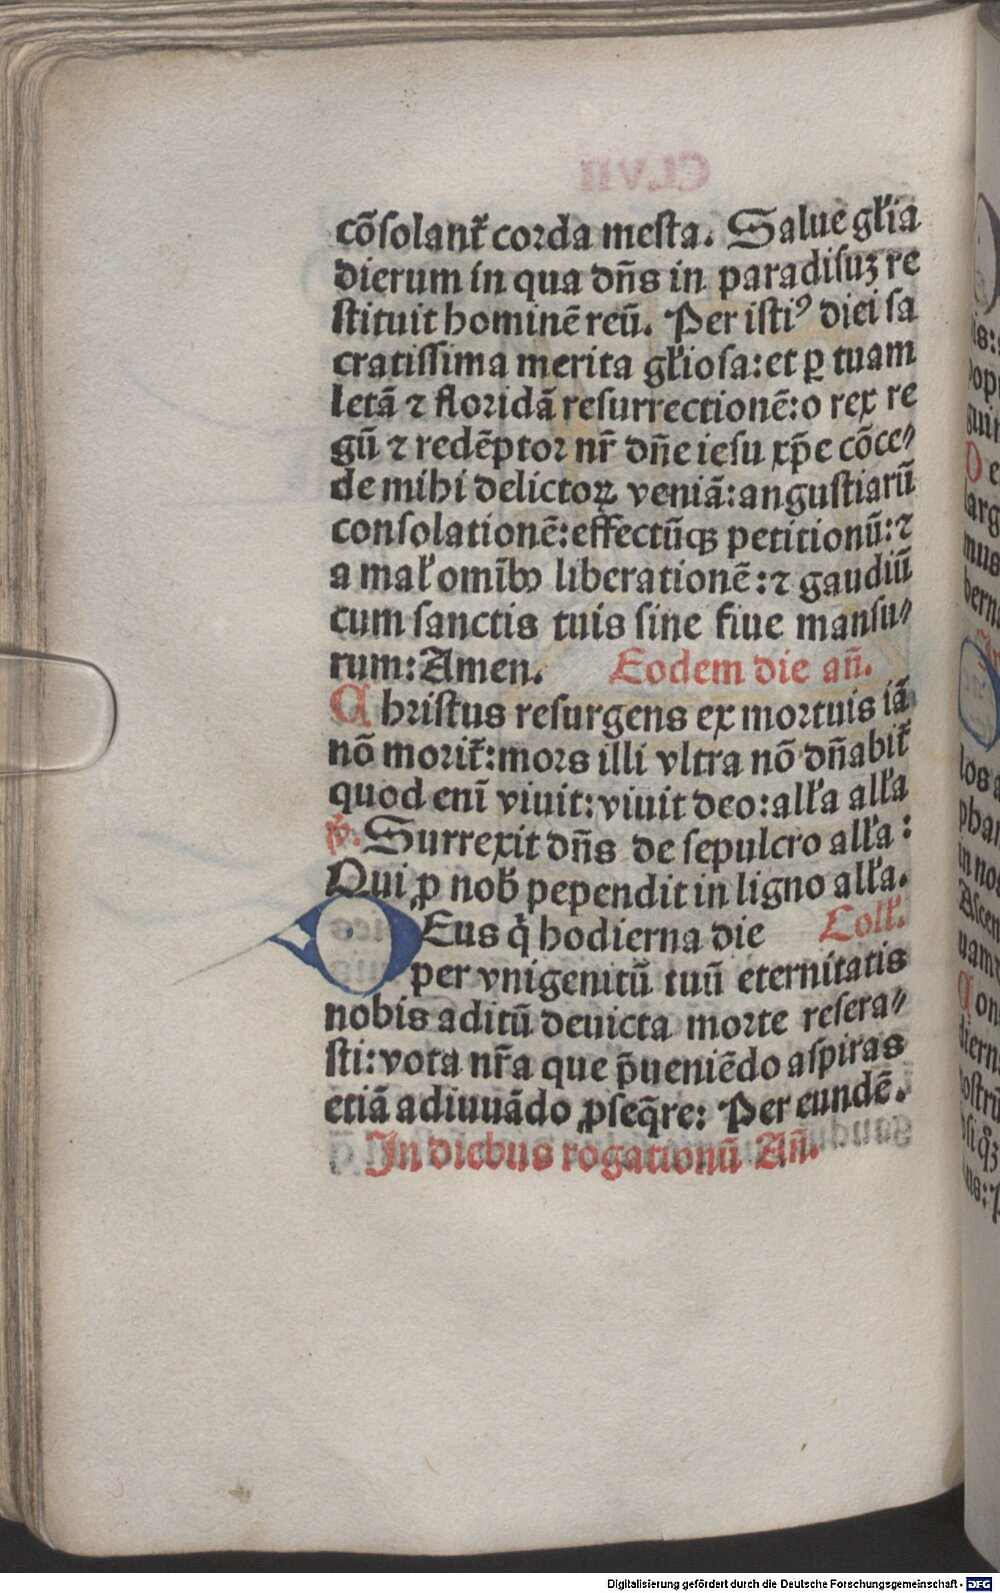 cõsolant᷑ corda mesta. Salue gl'ia
dierum in qua dñs in paradisuꝫ re
stituit hominẽ reũ. Per isti⁹ diei sa
cratissima merita gl'iosa: et ꝑ tuam
letã ⁊ floridã resurrectionẽ: o rex re
gũ ⁊ redẽptor nr̃ dñe iesu xp̃e cõce⸗
de mihi delictoꝝ veniã: angustiarũ
consolationẽ: effectũqꝫ petitionũ: ⁊
a mal' omĩbꝰ liberationẽ: ⁊ gaudiũ
cum sanctis tuis sine fiue mansu⸗
rum: Amen. Eodem die añ.
Christus resurgens ex mortuis iã
nõ morit᷑: mors illi vltra nõ dñabit᷑
quod enĩ viuit: viuit deo: all'a all'a
℣. Surrexit dñs de sepulcro all'a:
Qui ꝓ nob' pependit in ligno all'a.
DEus q̇ hodierna die Coll'.
per vnigenitũ tuũ eternitatis
nobis aditũ deuicta morte resera⸗
sti: vota nr̃a que p̃ueniẽdo aspiras
etiã adiuuãdo ꝓseq̃re: Per eundẽ.
In diebus rogationũ Añ.
Digitalisierung gefördert durch die Deutsche Forschungsgemeinschaft - DFG